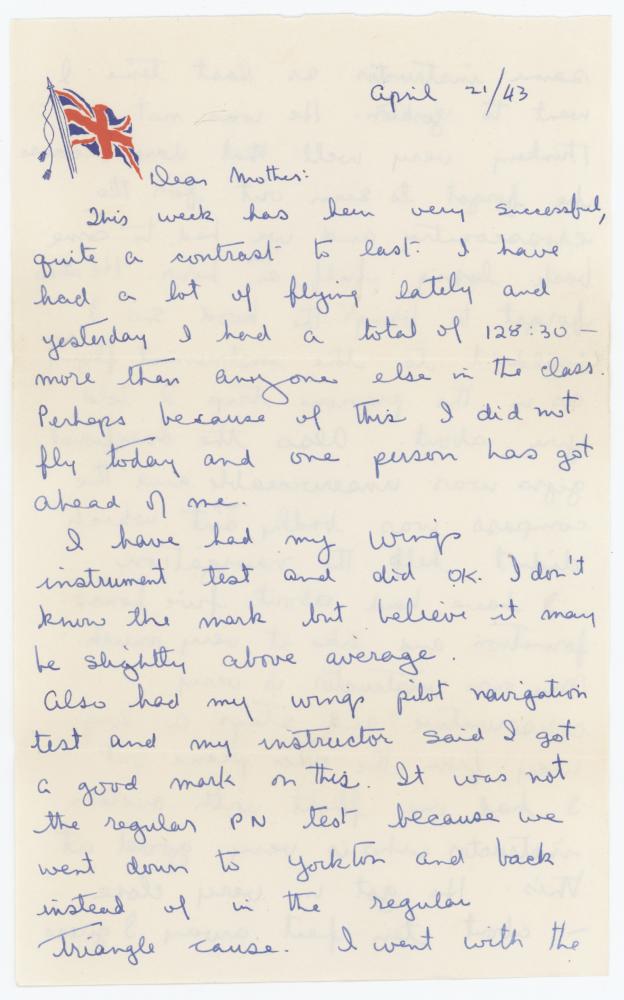 April 21/43
Dear Mother:
This week has been very successful,
quite a contrast to last. I have
had a lot of flying lately and
yesterday I had a total of 128:30 –
more than anyone else in the class.
Perhaps because of this I did not
fly today and one person has got
ahead of me.
I have had my wings
instrument test and did OK. I don't
know the mark but believe it may
be slightly above average.
Also had my wings pilot navigation
test and my instructor said I got
a good mark on this. It was not
the regular PN test because we
went down to Yorkton and back
instead of in the regular
triangle cause. I went with the